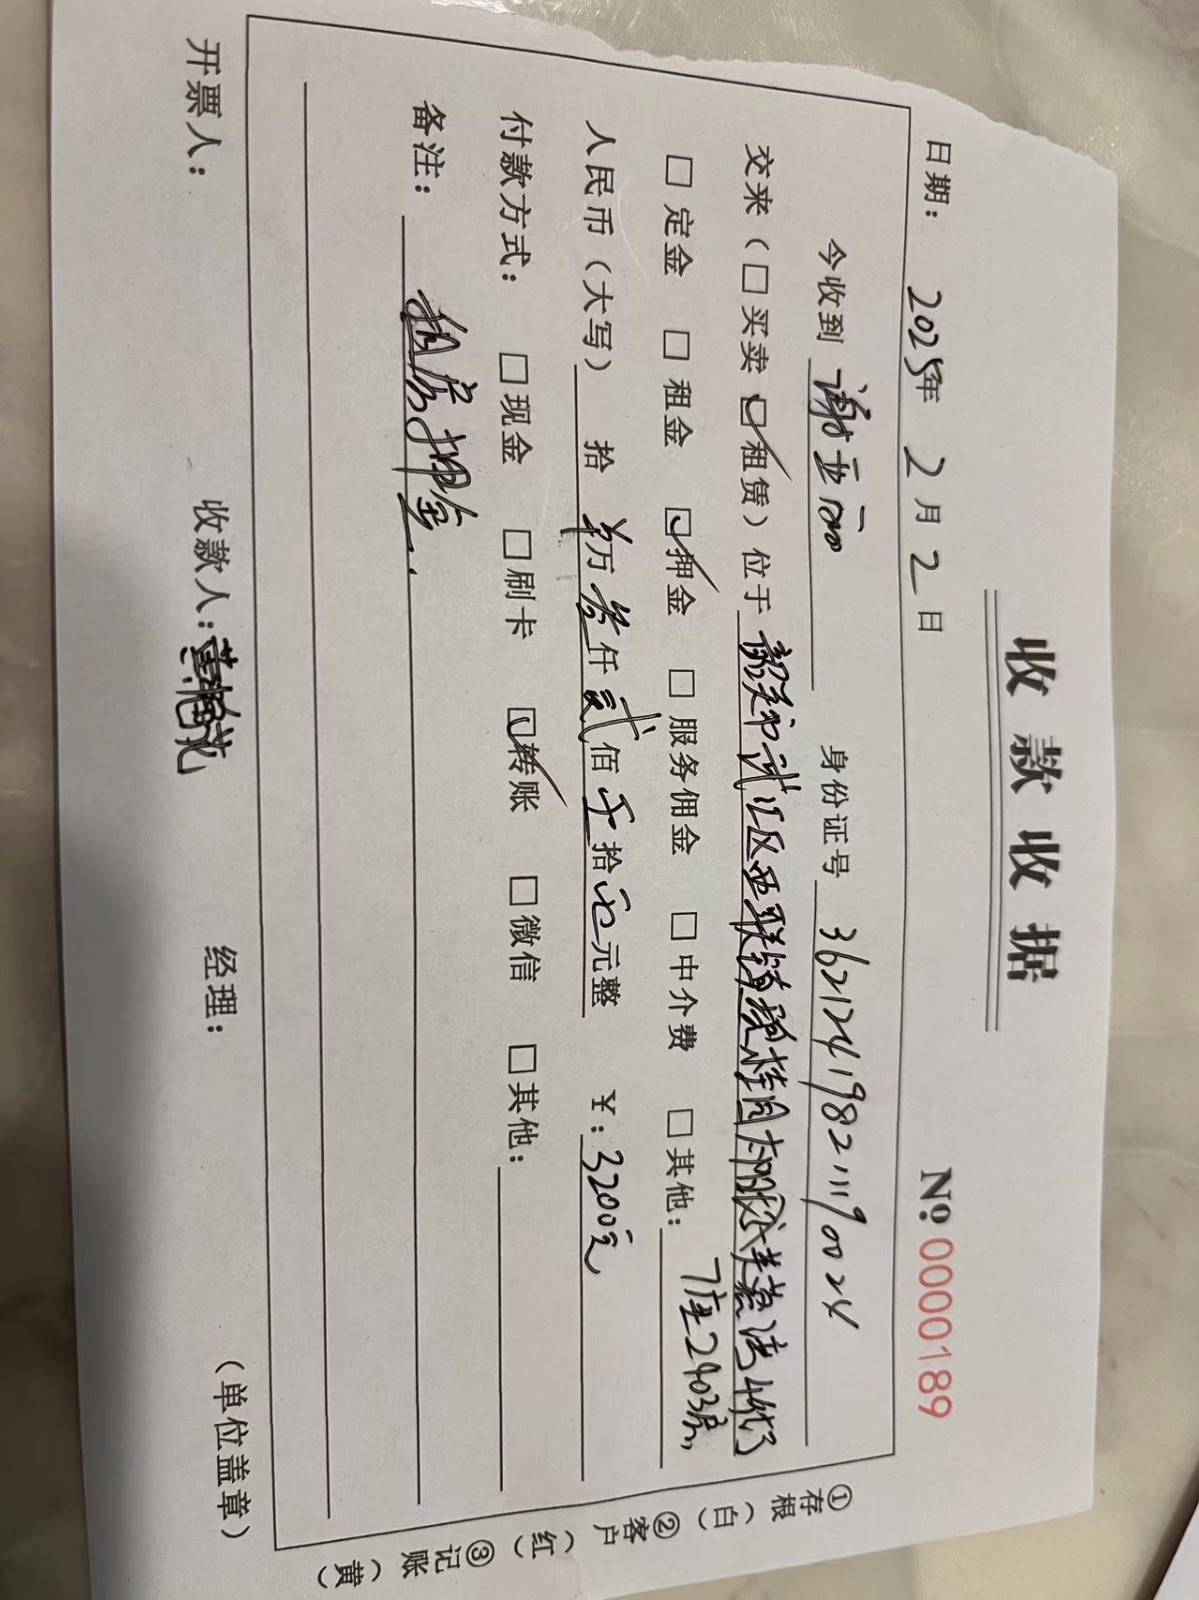 收款收据
日期: 2025年 2月2日 №:0000189
今收到 谢 身份证号 362124198211190024
交来（□买卖 ☑租赁）位于 韶关市武江区西联镇 芙蓉 碧桂园
7座2403房,
□定金 □租金 ☑押金 □服务佣金 □中介费 □其他:
人民币（大写） 拾 万叁仟贰佰零拾元整 ¥:3200元
付款方式: □现金 □刷卡 ☑转账 □微信 □其他:
备注: 租房押金.
开票人: 收款人: 经理: （单位盖章）
①存根（白）②客户（红）③记账（黄）